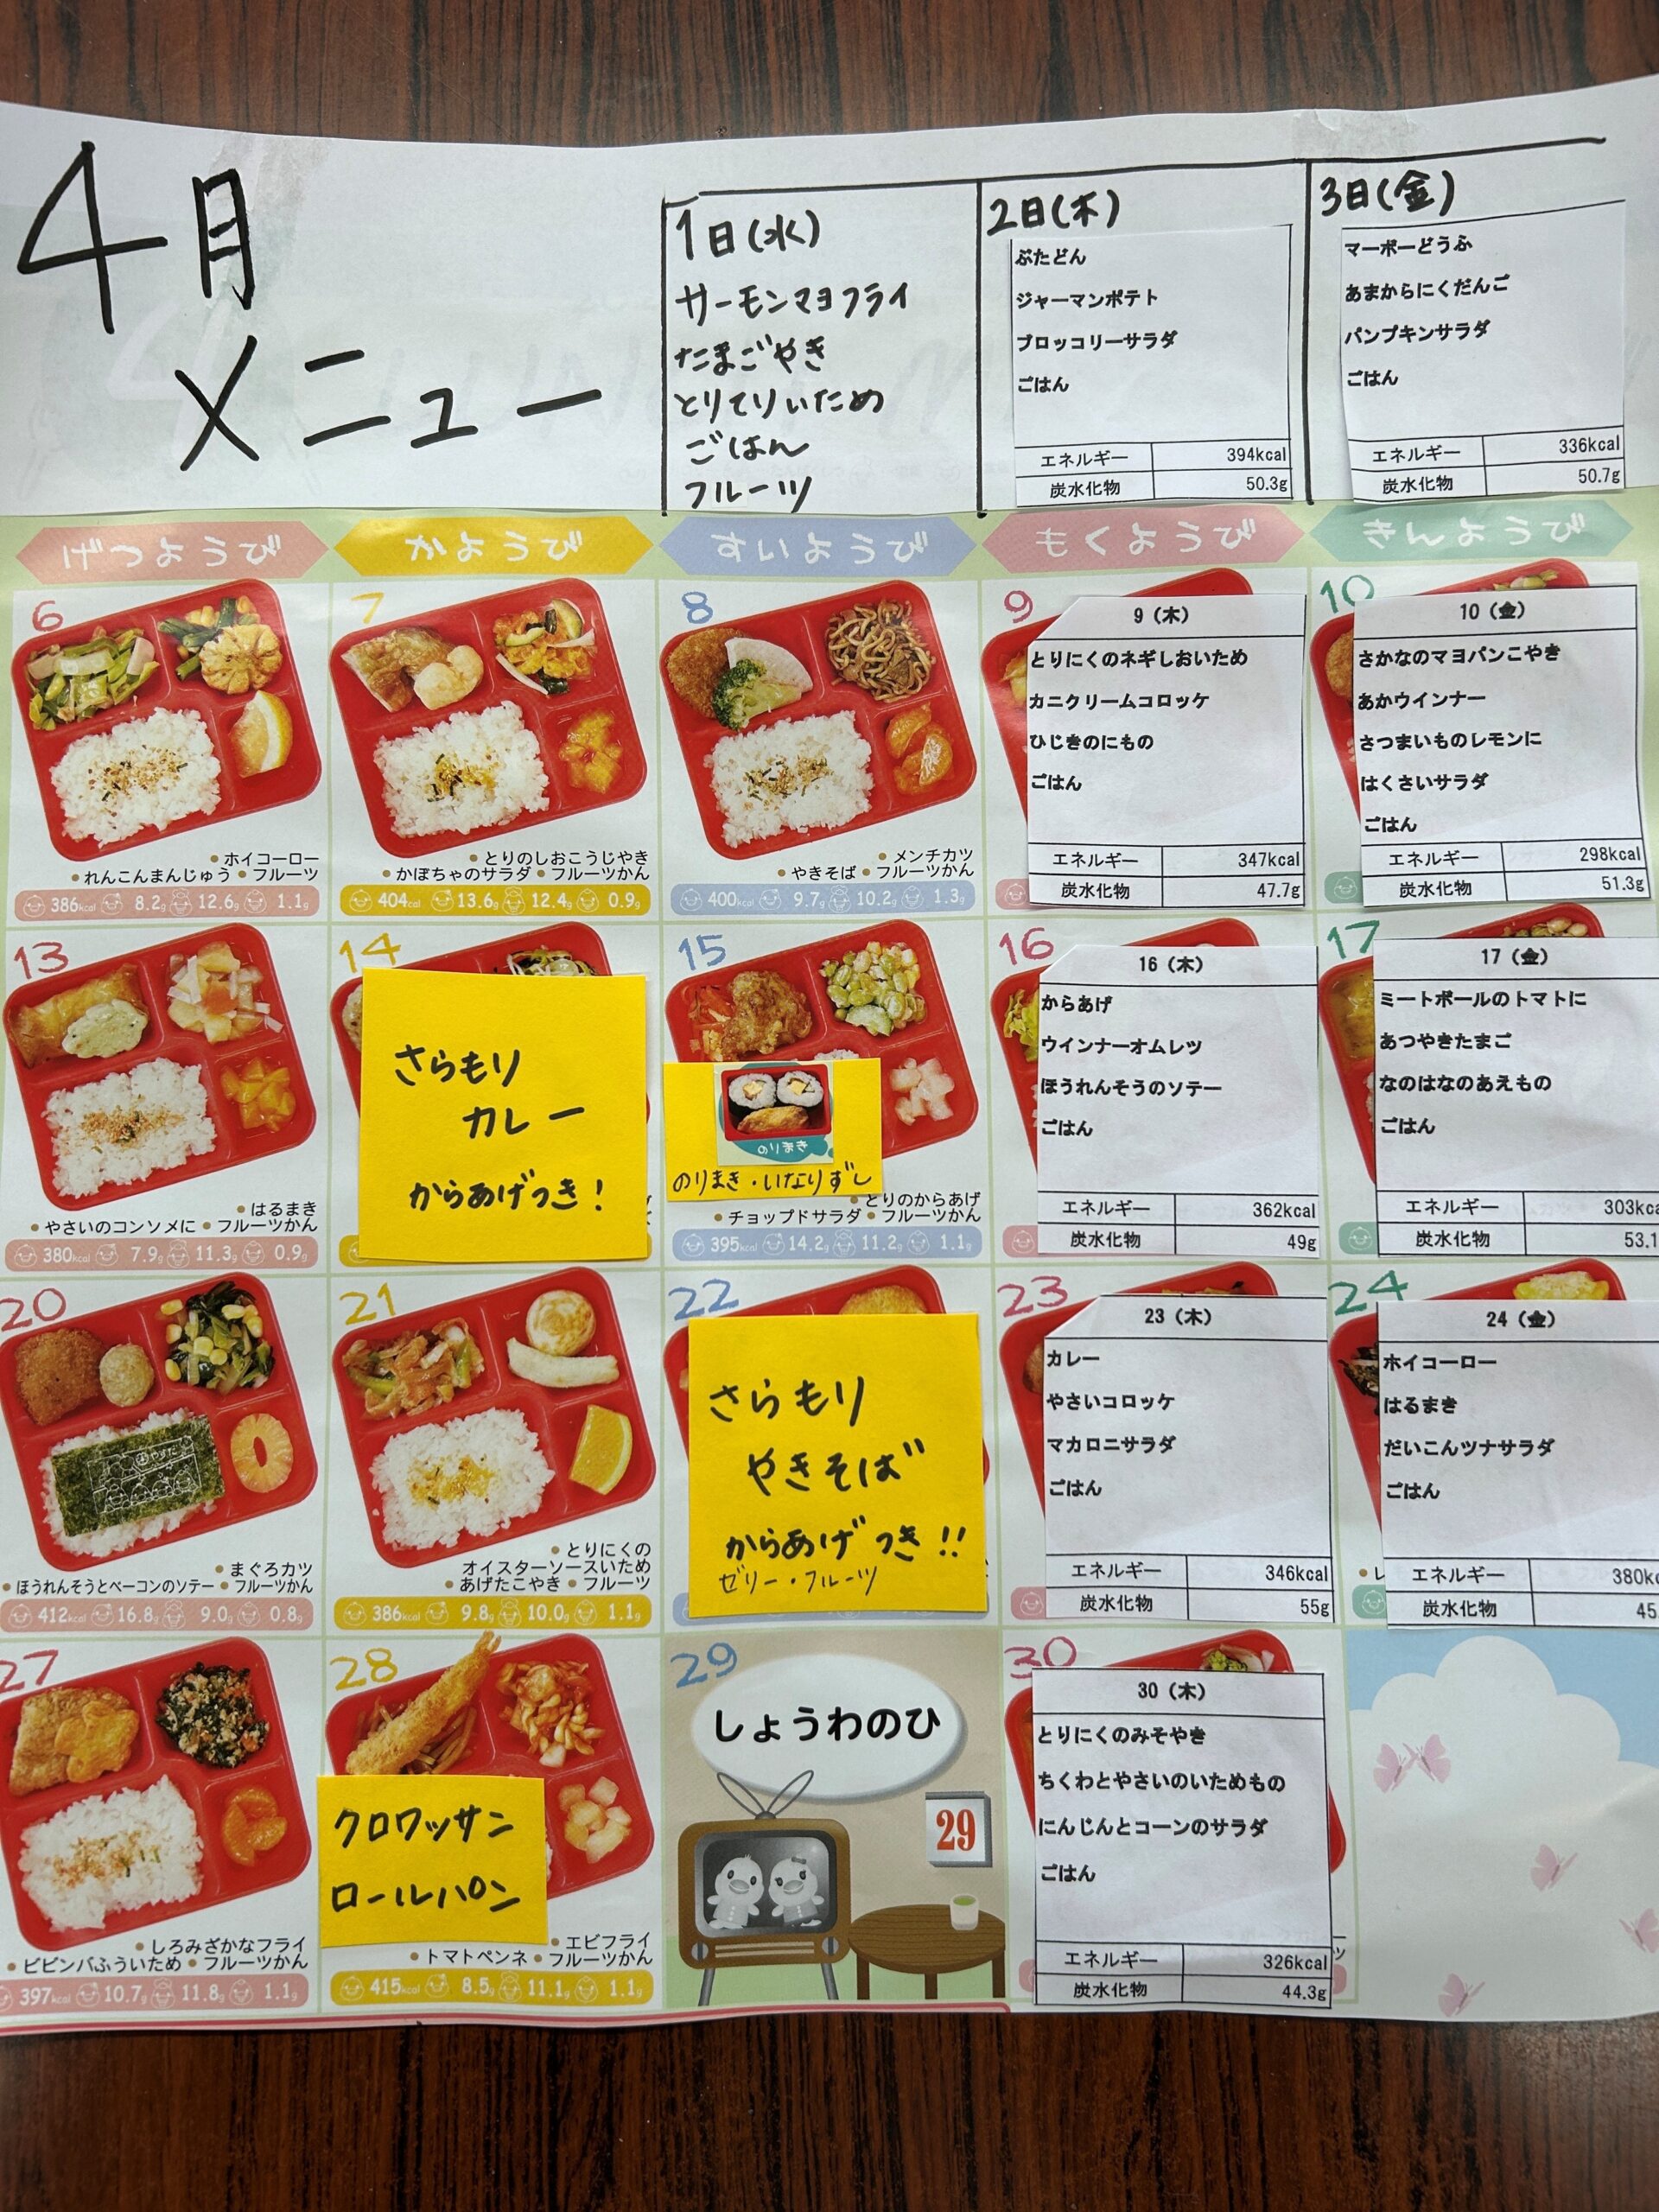 4月
メニュー
1日(水)
サーモンマヨフライ
たまごやき
とりてりいため
ごはん
フルーツ
2日(木)
ぶたどん
ジャーマンポテト
ブロッコリーサラダ
ごはん
エネルギー 394kcal
炭水化物 50.3g
3日(金)
マーボーどうふ
あまからにくだんご
パンプキンサラダ
ごはん
エネルギー 336kcal
炭水化物 50.7g
げつようび かようび すいようび もくようび きんようび
6
ホイコーロー
れんこんまんじゅう ● フルーツ
386kcal 8.2g 12.6g 1.1g
7
とりのしおこうじやき
かぼちゃのサラダ ● フルーツかん
404cal 13.6g 12.4g 0.9g
8
メンチカツ
やきそば ● フルーツかん
400kcal 9.7g 10.2g 1.3g
9
9(木)
とりにくのネギしおいため
カニクリームコロッケ
ひじきのにもの
ごはん
エネルギー 347kcal
炭水化物 47.7g
10
10(金)
さかなのマヨパンこやき
あかウインナー
さつまいものレモンに
はくさいサラダ
ごはん
エネルギー 298kcal
炭水化物 51.3g
13
はるまき
やさいのコンソメに ● フルーツかん
380kcal 7.9g 11.3g 0.9g
14
さらもり
カレー
からあげつき!
15
のりまき
のりまき・いなりずし
とりのからあげ
チョップドサラダ ● フルーツかん
395kcal 14.2g 11.2g 1.1g
16
16(木)
からあげ
ウインナーオムレツ
ほうれんそうのソテー
ごはん
エネルギー 362kcal
炭水化物 49g
17
17(金)
ミートボールのトマトに
あつやきたまご
なのはなのあえもの
ごはん
エネルギー 303kcal
炭水化物 53.1
20
まぐろカツ
ほうれんそうとベーコンのソテー ● フルーツかん
412kcal 16.8g 9.0g 0.8g
21
とりにくの
オイスターソースいため
あげたこやき ● フルーツ
386kcal 9.8g 10.0g 1.1g
22
さらもり
やきそば
からあげつき!!
ゼリー・フルーツ
23
23(木)
カレー
やさいコロッケ
マカロニサラダ
ごはん
エネルギー 346kcal
炭水化物 55g
24
24(金)
ホイコーロー
はるまき
だいこんツナサラダ
ごはん
エネルギー 380kc
炭水化物 45.
27
しろみざかなフライ
ビビンバふういため ● フルーツかん
397kcal 10.7g 11.8g 1.1g
28
クロワッサン
ロールパン
エビフライ
トマトペンネ ● フルーツかん
415kcal 8.5g 11.1g 1.1g
29
しょうわのひ
29
30
30(木)
とりにくのみそやき
ちくわとやさいのいためもの
にんじんとコーンのサラダ
ごはん
エネルギー 326kcal
炭水化物 44.3g